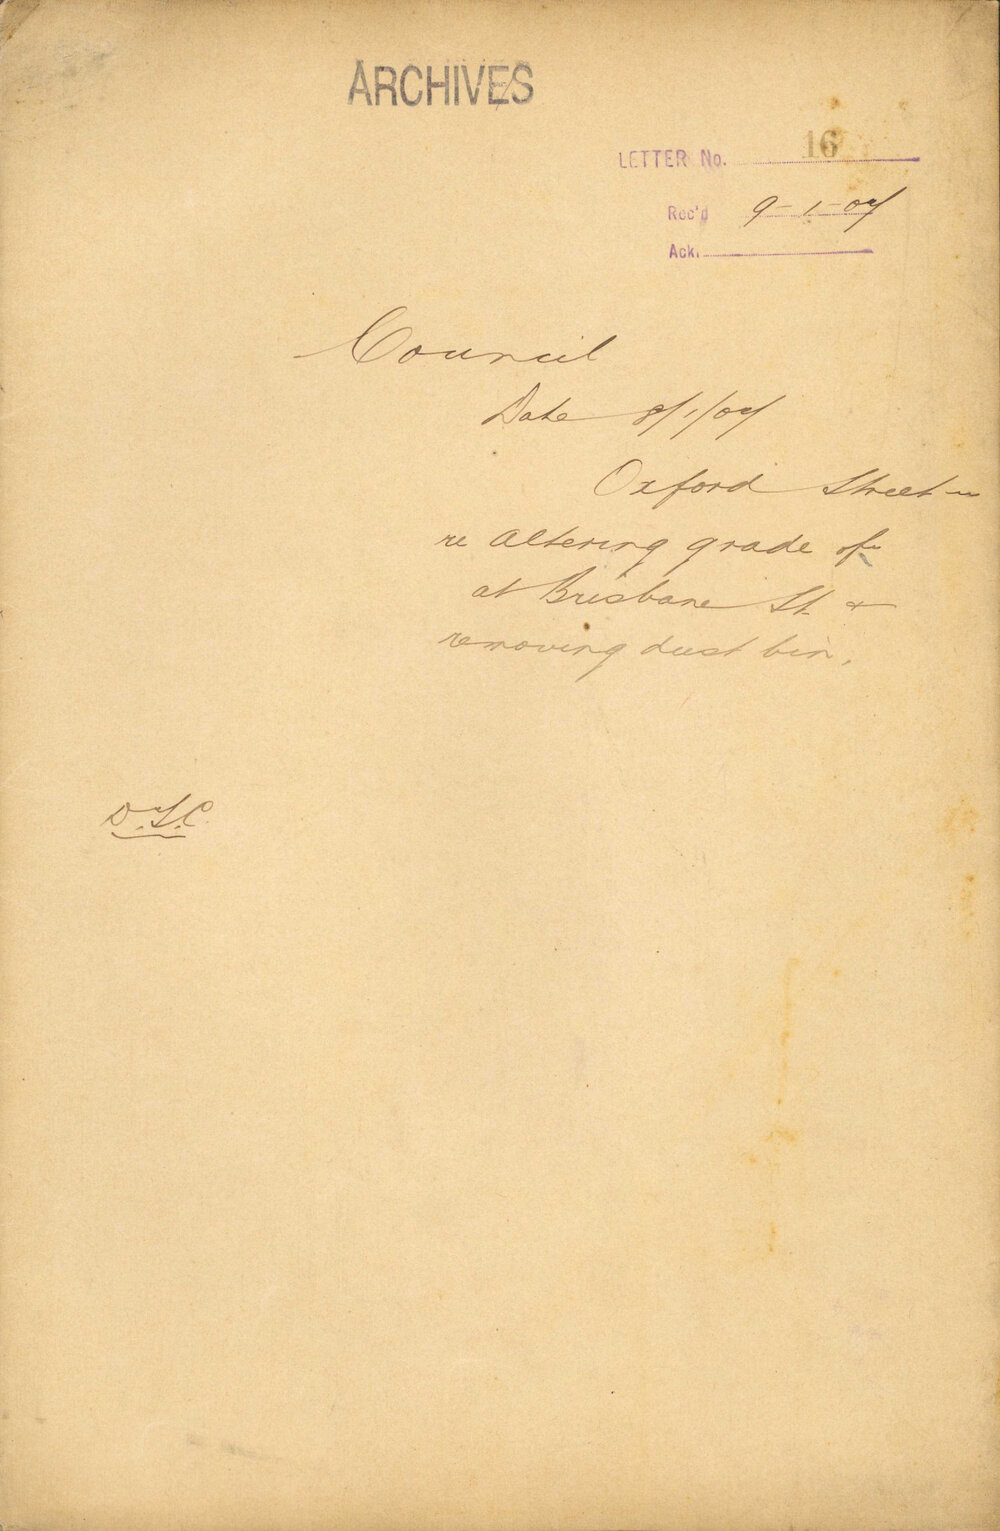 ARCHIVES
LETTER No. 16
Rec'd 9-1-07
Ack.
Council
Date 8/1/07
Oxford Street
re Altering grade of
at Brisbane St. &
removing dust bin.